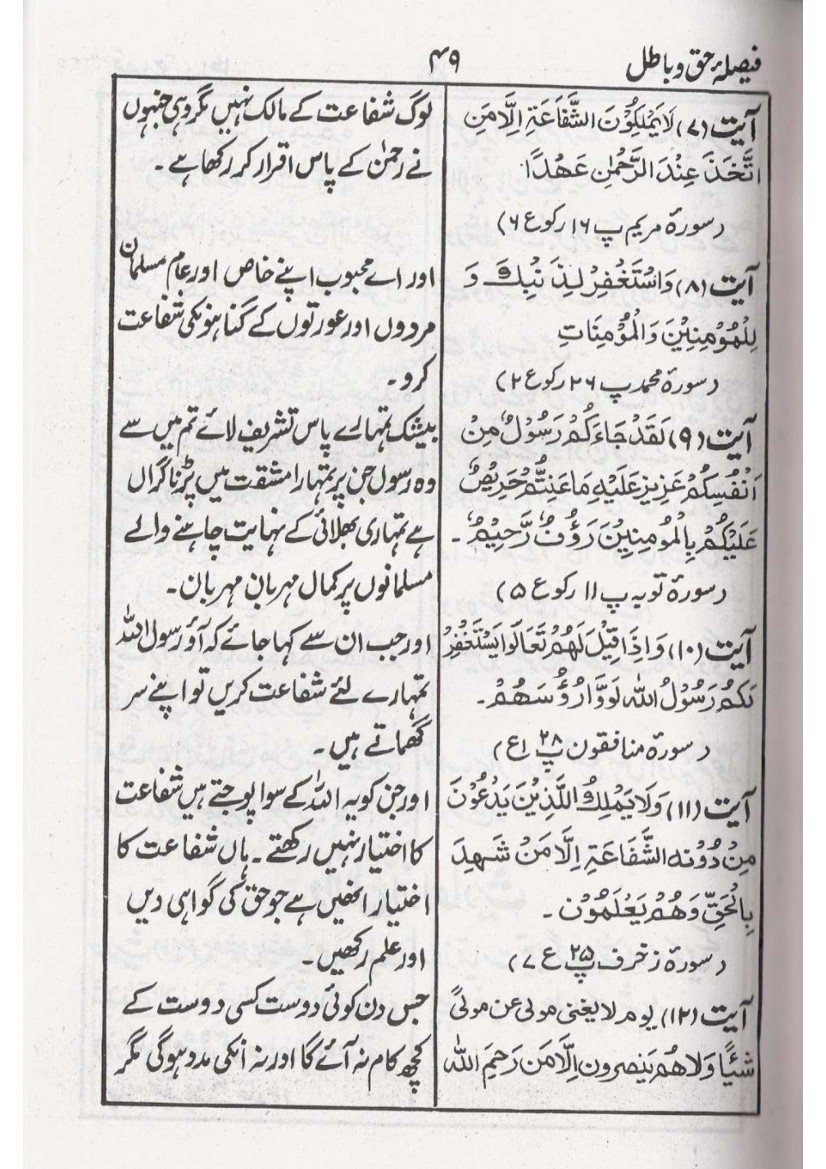 فیصلۂ حق و باطل
۴۹
آیت (۷) لَا یَمْلِکُوْنَ الشَّفَاعَۃِ اِلَّا مَنِ
اتَّخَذَ عِنْدَ الرَّحْمٰنِ عَھْدًا
(سورۂ مریم پ ۱۶ رکوع ۶)
آیت (۸) وَاسْتَغْفِرْ لِذَنْبِكَ وَ
لِلْمُؤْمِنِیْنَ وَالْمُؤْمِنَاتِ
(سورۂ محمد پ ۲۶ رکوع ۲)
آیت (۹) لَقَدْ جَاءَکُمْ رَسُوْلٌ مِنْ
اَنْفُسِکُمْ عَزِیْزٌ عَلَیْہِ مَا عَنِتُّمْ حَرِیْصٌ
عَلَیْکُمْ بِالْمُومِنِیْنَ رَؤُفٌ رَّحِیْمٌ ۔
(سورۂ توبہ پ ۱۱ رکوع ۵)
آیت (۱۰) وَاِذَا قِیْلَ لَھُمْ تَعَالَوْا یَسْتَغْفِرْ
لَکُمْ رَسُوْلُ اللّٰہِ لَوَّا رُؤُسَھُمْ ۔
(سورۂ منافقون پ ۲۸ ع۱)
آیت (۱۱) وَلَا یَمْلِكُ الَّذِیْنَ یَدْعُوْنَ
مِنْ دُوْنِہ الشَّفَاعَۃِ اِلَّا مَنْ شَھِدَ
بِالْحَقِّ وَھُمْ یَعْلَمُوْنَ ۔
(سورۂ زخرف پ ۲۵ ع ۷)
آیت (۱۲) یوم لا یغنی مولی عن مولیً
شئیًا وَلَا ھُم یَنصرون اِلَّا مَن رَحِمَ اللّٰہ
لوگ شفاعت کے مالک نہیں مگر وہی جنہوں
نے رحمٰن کے پاس اقرار کر رکھا ہے ۔
اور اے محبوب اپنے خاص اور عام مسلمان
مردوں اور عورتوں کے گناہونکی شفاعت
کرو ۔
بیشک تمہارے پاس تشریف لائے تم میں سے
وہ رسول جن پر تمہارا مشقت میں پڑنا گراں
ہے تمہاری بھلائی کے نہایت چاہنے والے
مسلمانوں پر کمال مہربان مہربان ۔
اور جب ان سے کہا جائے کہ آؤ رسول اللّٰہ
تمہارے لئے شفاعت کریں تو اپنے سر
گھماتے ہیں ۔
اور جن کو یہ اللّٰہ کے سوا پوجتے ہیں شفاعت
کا اختیار نہیں رکھتے ۔ ہاں شفاعت کا
اختیار انھیں ہے جو حق کی گواہی دیں
اور علم رکھیں ۔
جس دن کوئی دوست کسی دوست کے
کچھ کام نہ آئے گا اور نہ انکی مدد ہوگی مگر